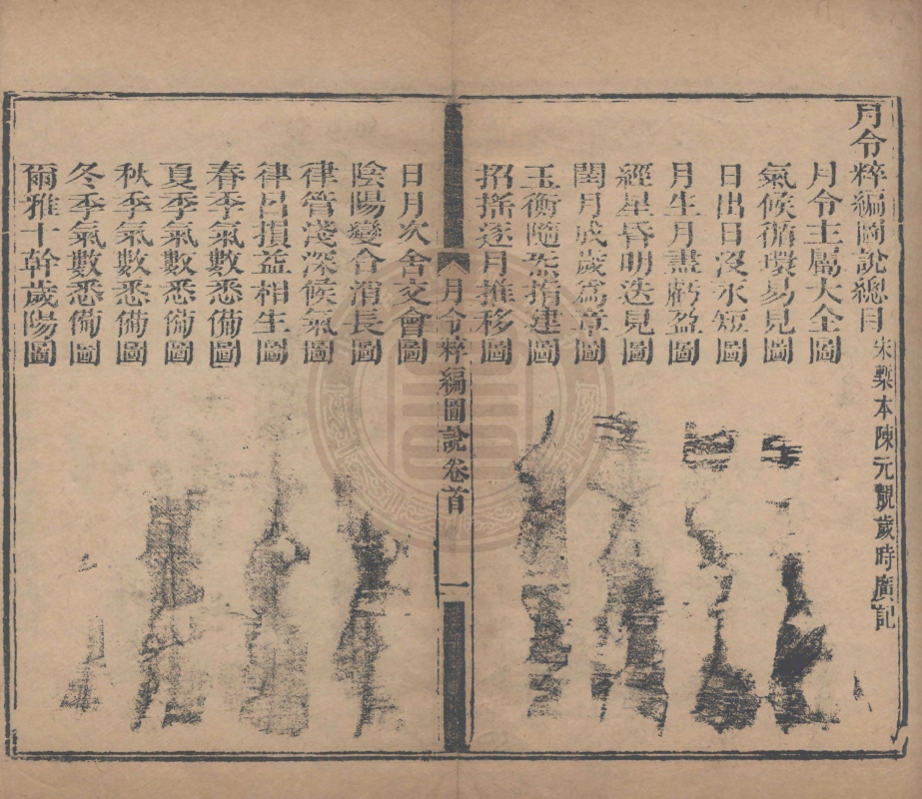 月令粹編圖說總目 宋槧本陳元靚歲時廣記
月令主屬大全圖
氣候循環易見圖
日出日沒永短圖
月生月盡虧盈圖
經星昏明迭見圖
閏月成歲爲章圖
玉衡隨炁指建圖
招搖逐月推移圖
月令粹編圖說卷首 一
日月次舍交會圖
陰陽變合消長圖
律管淺深候氣圖
律呂損益相生圖
春季氣數悉備圖
夏季氣數悉備圖
秋季氣數悉備圖
冬季氣數悉備圖
爾雅十幹歲陽圖